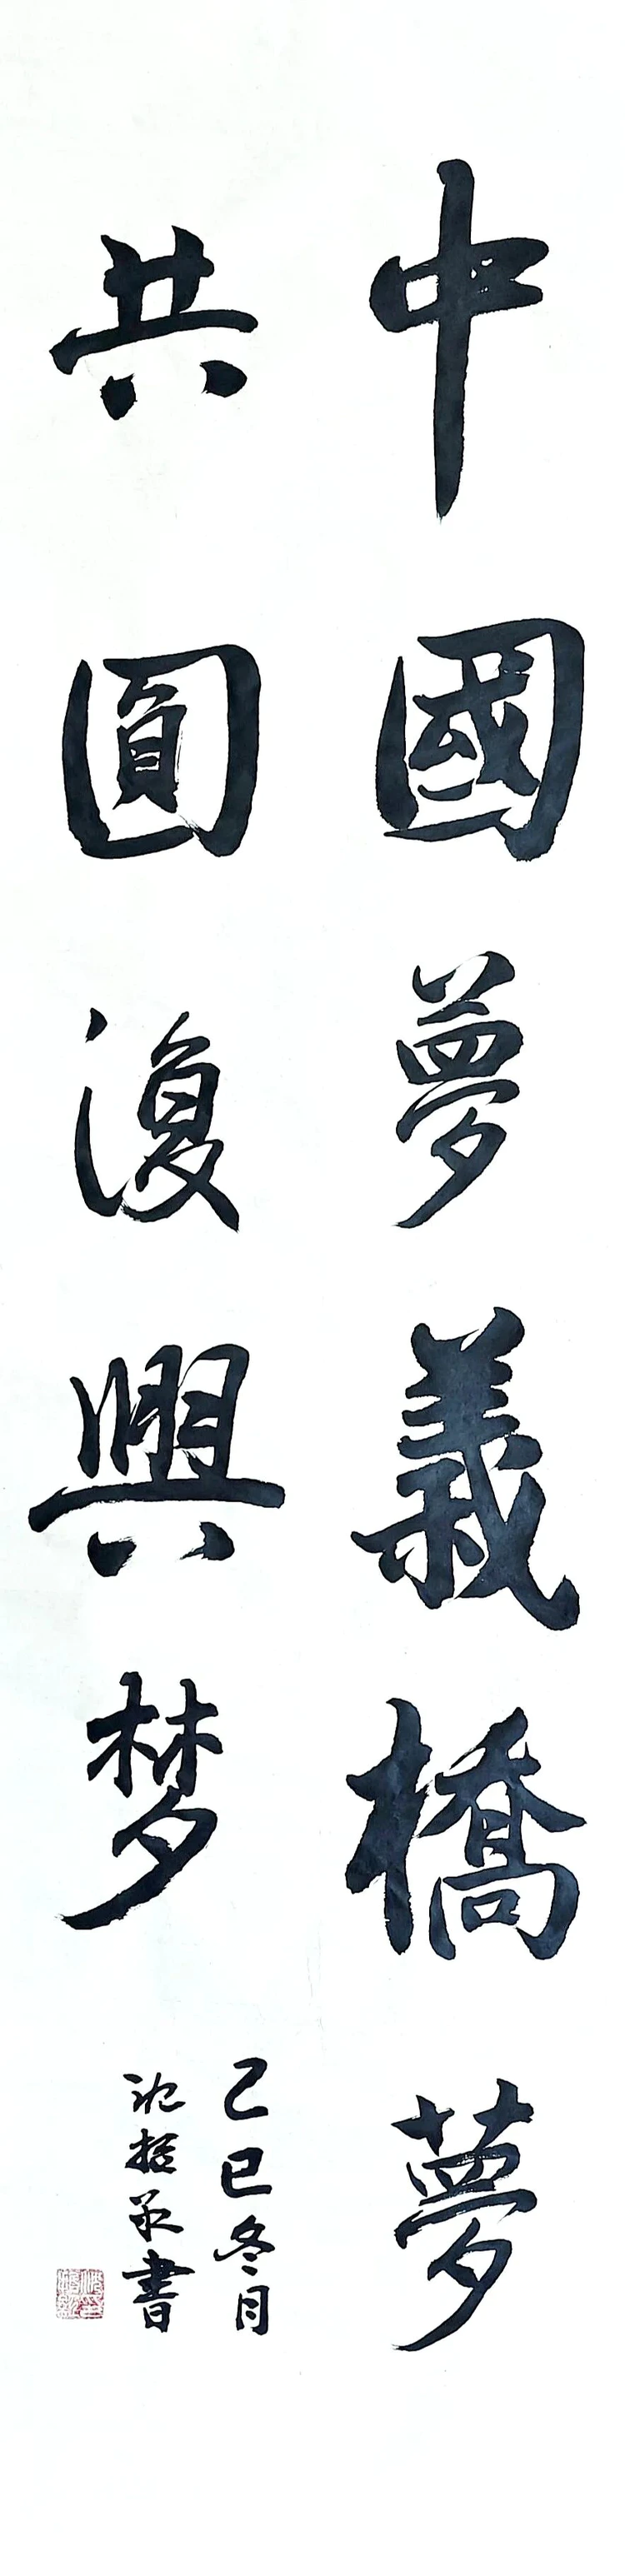 中國夢義橋夢
共圓復興梦
乙巳冬月
沈拾永書